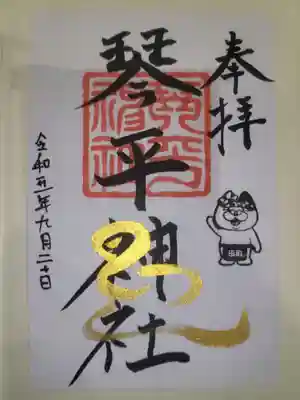 奉拝
琴平神社
令和五年九月二十日